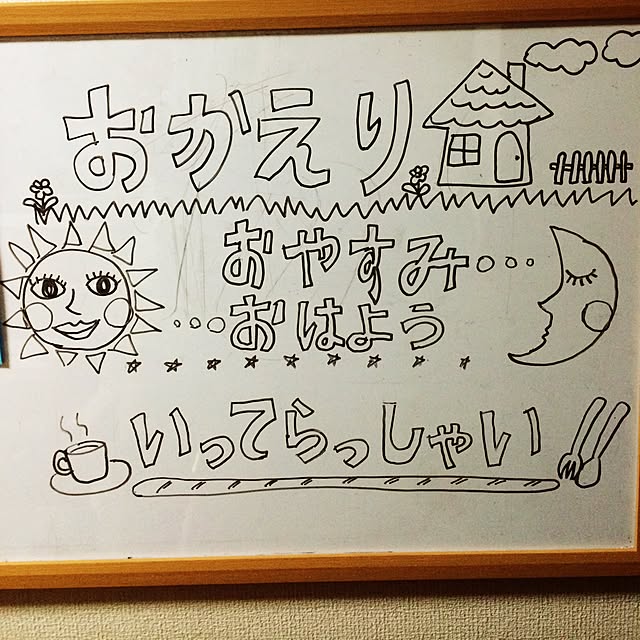 おかえり
おやすみ...
...おはよう
いってらっしゃい